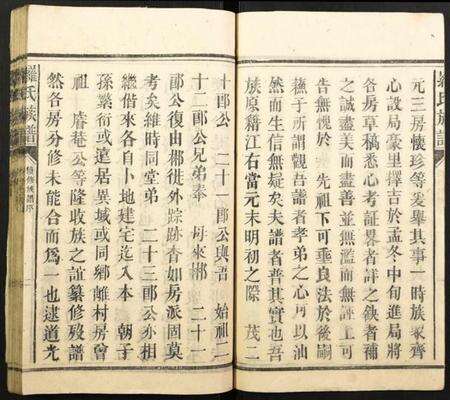 羅氏族譜
元三房懷珍等爰舉其事一時族眾齊
心設局豪里擇吉於孟冬中旬進局將
各房草稿悉心考証畧者詳之缺者補
之誠盡美而盡善並無濫而無誣上可
告無愧於 先祖下可垂良法於後嗣
藉于所謂觀吾譜者孝弟之心可以油
然而生信無疑矣夫譜者普其實也吾
族原籍江右當元末明初之際 茂二
十郎公 二十一郎公與吾 始祖二
十二郎公兄弟奉 母來梆 二十一
郎公復由梆徙外踪跡杳如房派固莫
考矣維時同堂弟 二十三郎公亦相
繼偕來各自小地建宅迄入本 朝子
孫繁衍或遷居異域或同鄉離村房曾
祖 庵公等隆收族之誼纂修殘譜
然各房分修未能合而爲一也逮道光
羅氏族譜